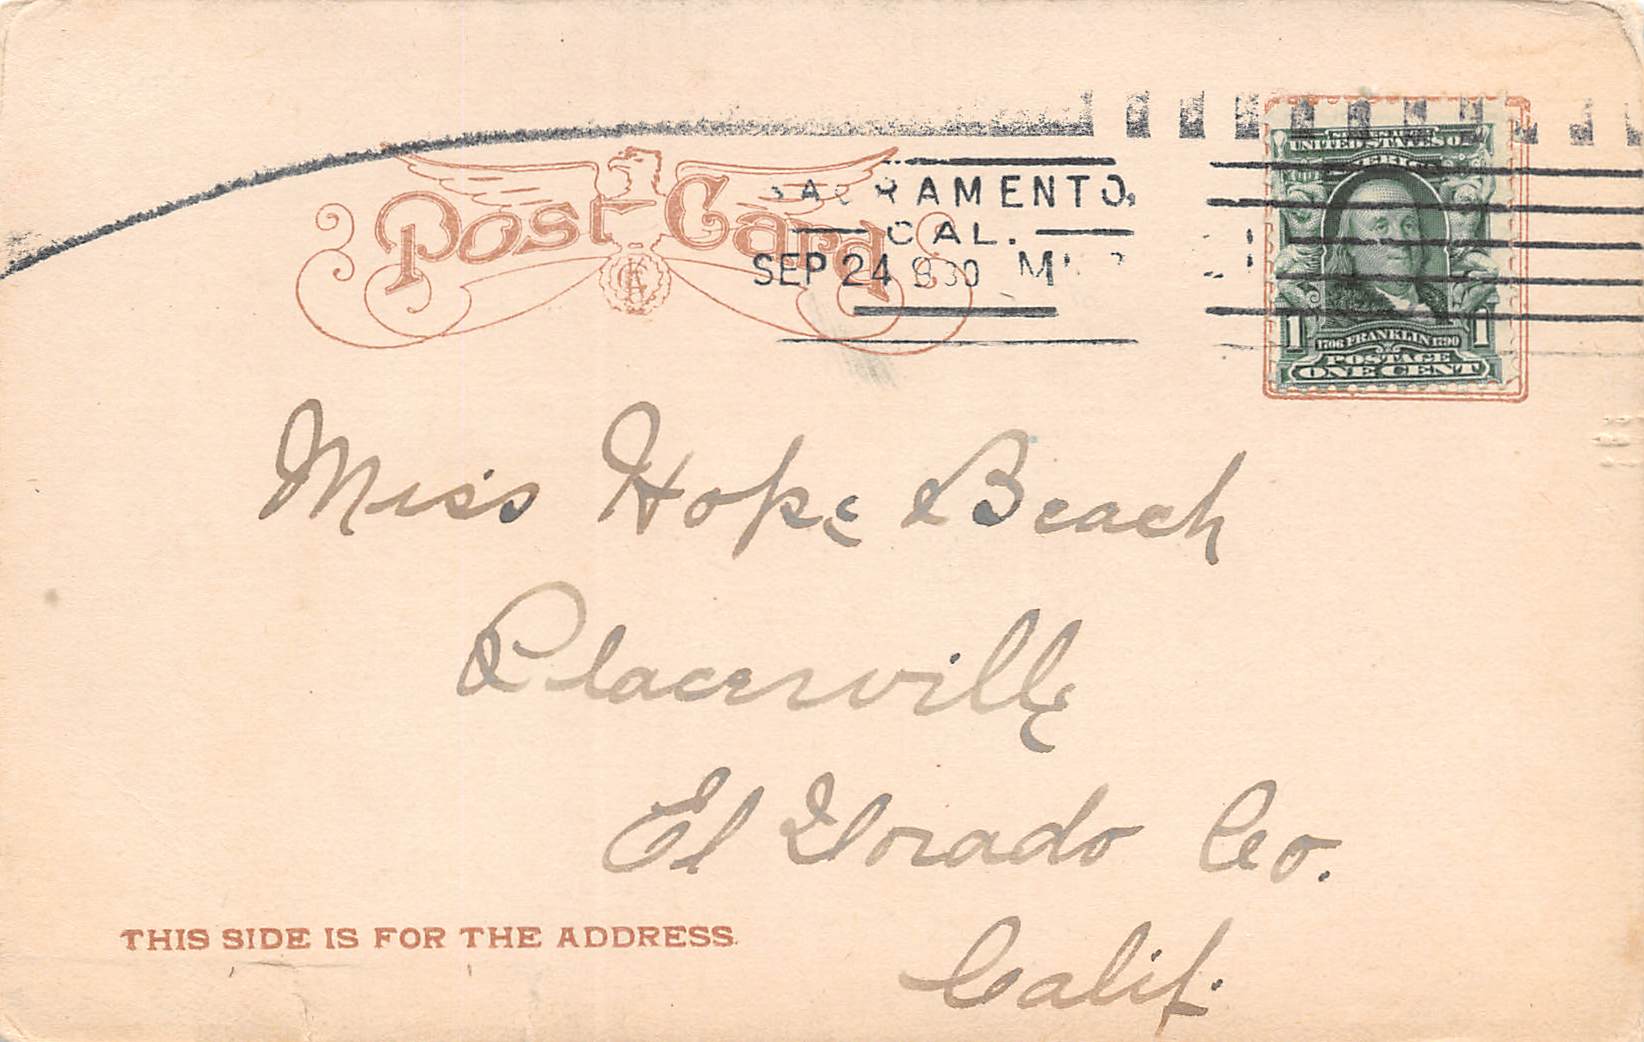 Post Card
SACRAMENTO,
CAL.
SEP 24 830
UNITED STATES OF
AMERICA
1706 FRANKLIN 1790
1 1
POSTAGE
ONE CENT
Miss Hope Beach
Placerville
El Dorado Co.
Calif.
THIS SIDE IS FOR THE ADDRESS.